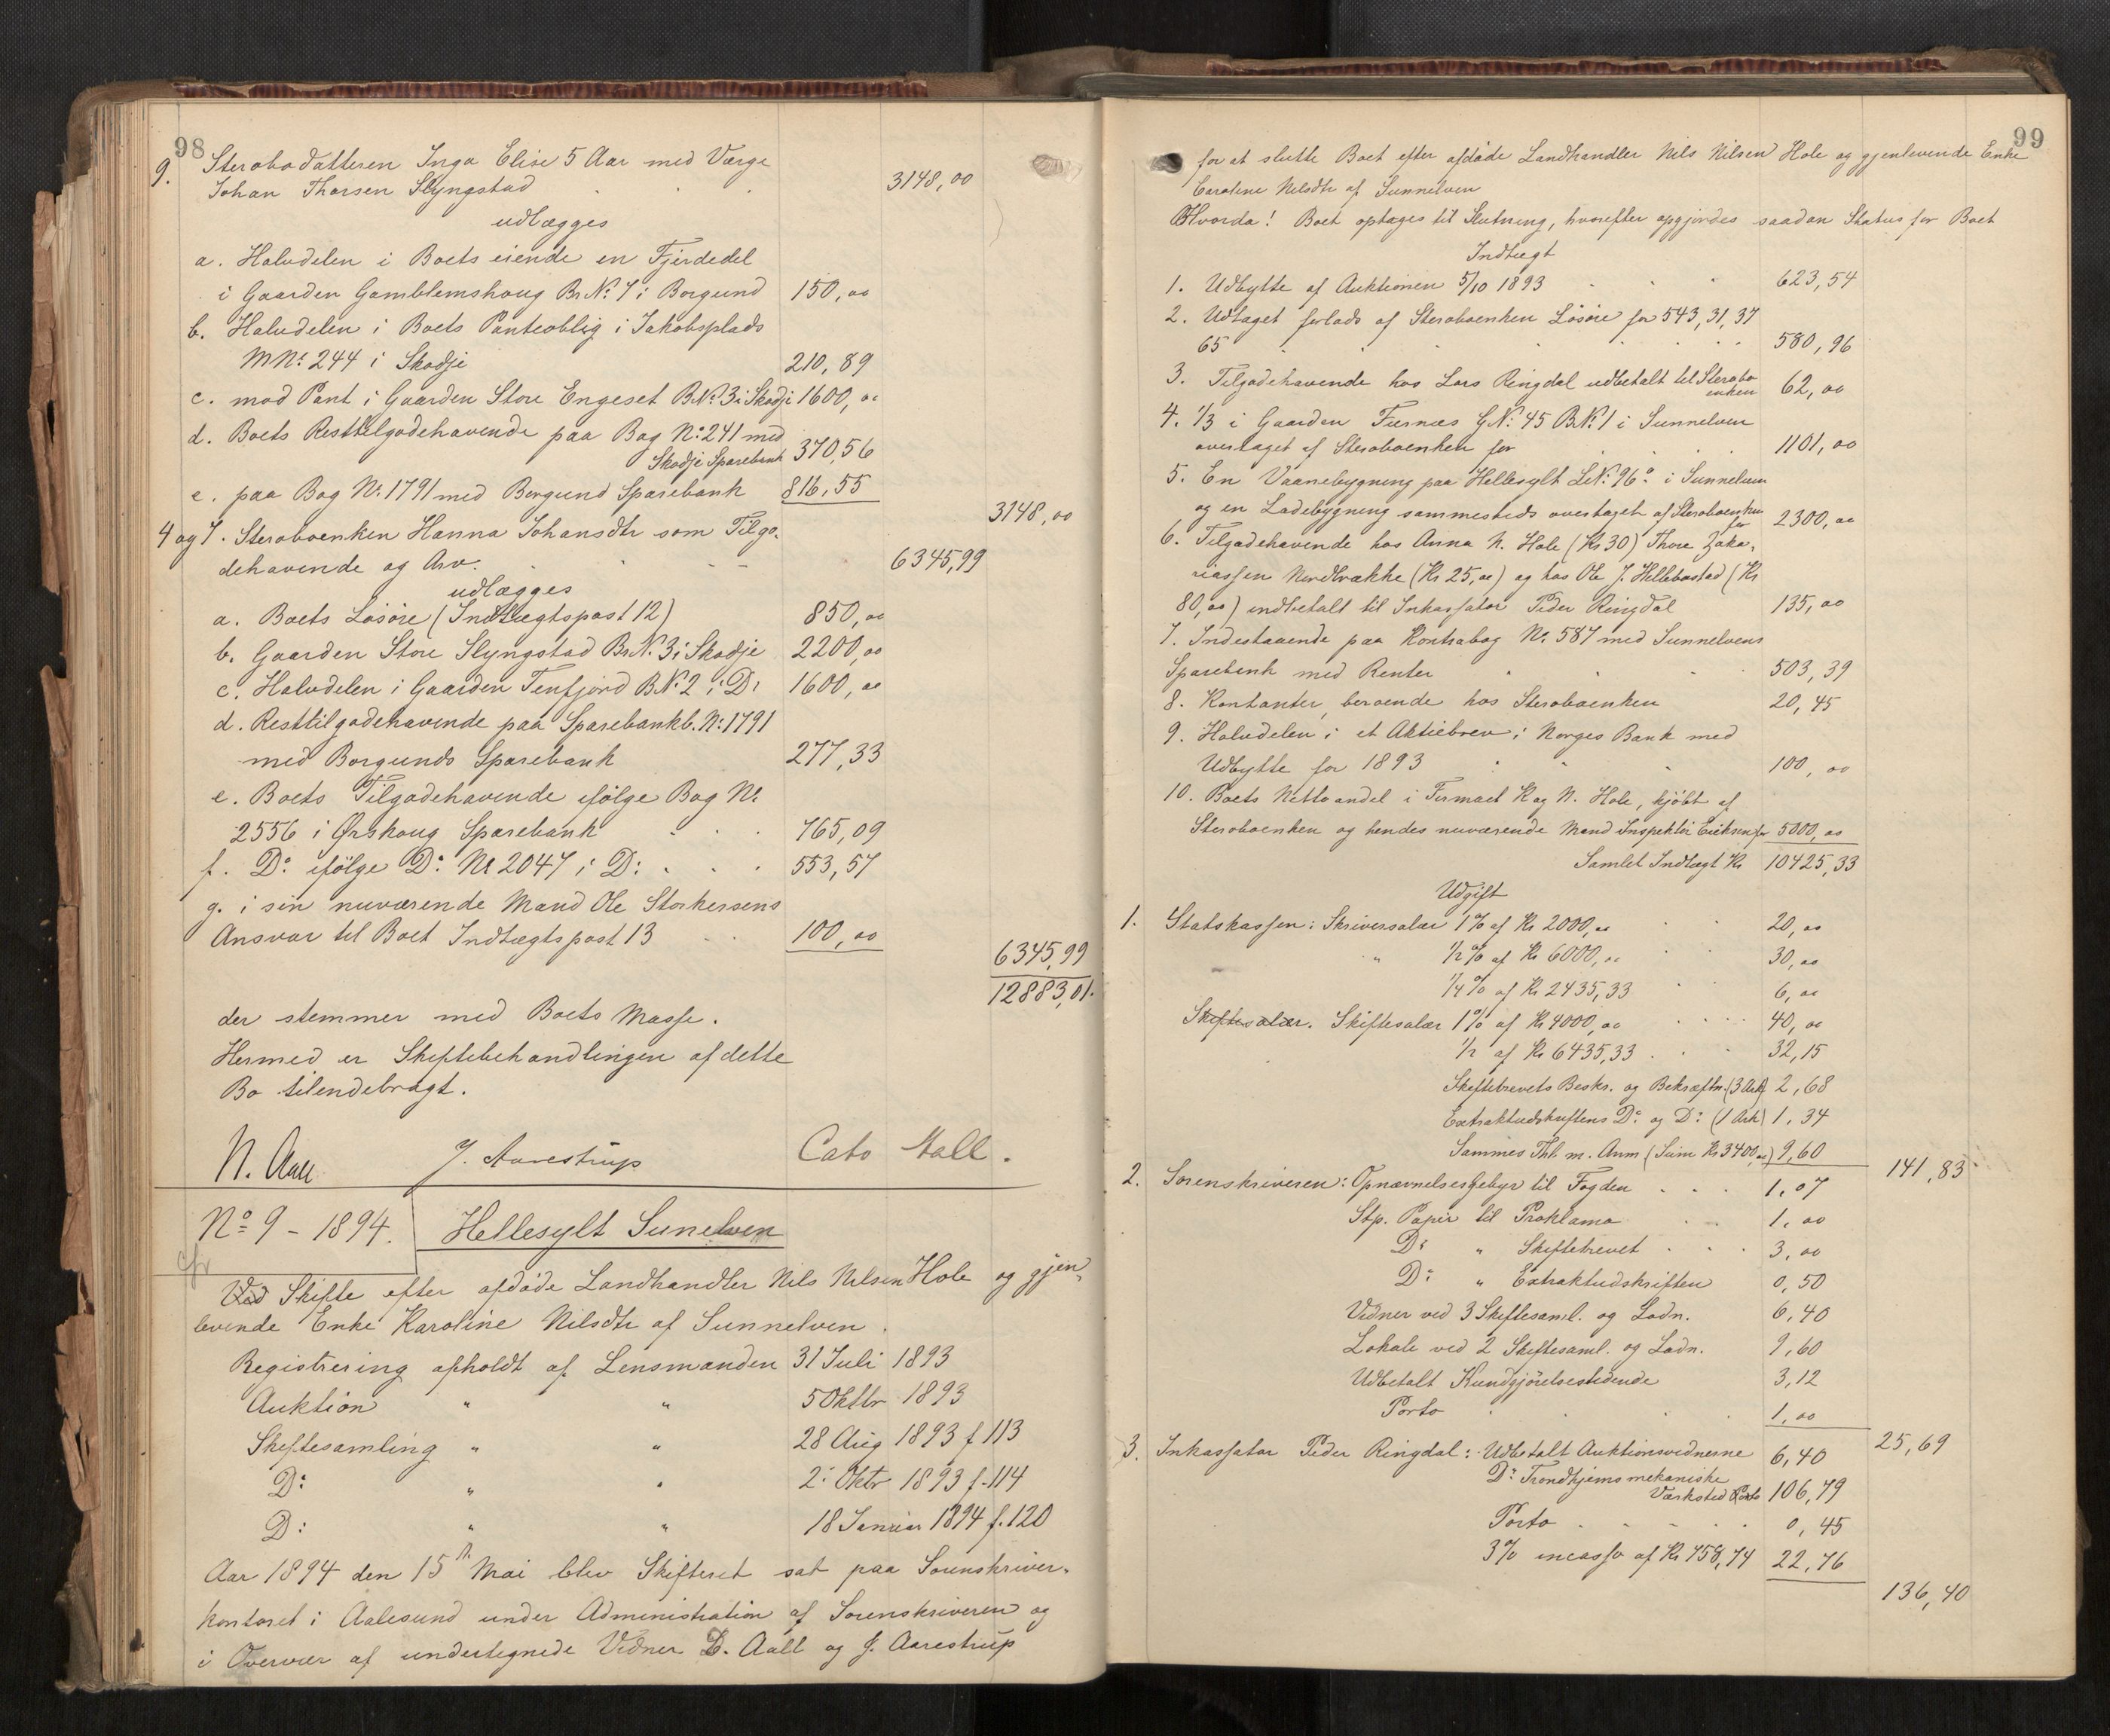 98
9. Sterobodatteren Inga Elise 5 Aar med Værge
Johan Thorsen Slyngstad 3148,00
udlægges
a. Halvdelen i Boets eiende en Fjerdedel
i Gaarden Gamblemshoug Br.No. 7 i Borgund 150,00
b. Halvdelen i Boets Panteoblig i Jakobsplads
MNo. 244 i Skodje 210,89
c. mod Pant i Gaarden Store Engeset B.No. 3 i Skodje 1600,00
d. Boets Resttilgodehavende paa Bog No. 241 med
Skodje Sparebank 370,56
e. paa Bog No. 1791 med Borgund Sparebank 816,55
3148,00
4 og 7. Steroboenken Hanna Johansdtr som Tilgo-
dehavende og Arv. 6345,99
udlægges
a. Boets Løsøre (Indtægtspost 12) 850,00
b. Gaarden Store Slyngstad Br.No. 3 i Skodje 2200,00
c. Halvdelen i Gaarden Tenfjord B.No. 2 i Do 1600,00
d. Resttilgodehavende paa Sparebankb. No. 1791
med Borgunds Sparebank 277,33
e. Boets Tilgodehavende ifølge Bog No.
2556 i Ørskoug Sparebank 765,09
f. Do ifølge Do No 2047 i Do 553,57
g. i sin nuværende Mand Ole Storkersens
Ansvar til Boet Indtægtspost 13 100,00
6345,99
12883,01.
der stemmer med Boets Masse.
Hermed er Skiftebehandlingen af dette
Bo tilendebragt.
N. Aall J. Aarestrup Cato Aall.
No 9 – 1894. Hellesylt Sunelven
cfr
Ved Skifte efter afdøde Landhandler Nils Nilsen Hole og gjen-
levende Enke Karoline Nilsdtr af Sunnelven.
Registrering afholdt af Lensmanden 31 Juli 1893
Auktion " " 5 Oktbr 1893
Skiftesamling " " 28 Aug 1893 f 113
Do " " 2. Oktr 1893 f. 114
Do " " 18 Januar 1894 f. 120
Aar 1894 den 15de Mai blev Skifteret sat paa Sorenskriver-
kontoret i Aalesund under Administration af Sorenskriveren og
i Overvær af undertegnede Vidner D. Aall og J. Aarestrup
99
for at slutte Boet efter afdøde Landhandler Nils Nilsen Hole og gjenlevende Enke
Caroline Nilsdtr af Sunnelven
Hvorda! Boet optages til Slutning, hvorefter opgjordes saadan Status for Boet
Indtægt
1. Udbytte af Auktionen 5/10 1893 623,54
2. Udtaget forlods af Steroboenken Løsøre for 543,31, 37
65 580,96
3. Tilgodehavende hos Lars Ringdal udbetalt til Sterobo
enken 62,00
4. 1/3 i Gaarden Furnæs G.No. 45 B.No. 1 i Sunnelven
overtaget af Steroboenken for 1101,00
5. En Vaanebygning paa Hellesylt L.No. 96a i Sunnelven
og en Ladebygning sammesteds overtaget af Steroboenken
for 2300,00
6. Tilgodehavende hos Anna N. Hole (Kr 30) Thore Zaka-
riassen Nordbrække (Kr 25,00) og hos Ole J. Hellebostad (Kr
80,00) indbetalt til Inkassator Peder Ringdal 135,00
7. Indestaaende paa Kontrabog No. 587 med Sunnelvens
Sparebank med Renter 503,39
8. Kontanter, beroende hos Steroboenken 20,45
9. Halvdelen i et Aktiebrev i Norges Bank med
Udbytte for 1893 100,00
10. Boets Nettoandel i Firmaet K og N. Hole, kjøbt af
Steroboenken og hendes nuværende Mand Inspektör Eriksen for 5000,00
Samlet Indtægt Kr 10425,33
Udgift
1. Statskassen: Skriversalær 1% af Kr 2000,00 20,00
" 1/2% af Kr 6000,00 30,00
1/4% af Kr 2435,33 6,00
Skiftesalær. Skiftesalær 1% af Kr 4000,00 40,00
1/2 af Kr 6435,33 32,15
Skiftebrevets Beskr. og Bekræftn. (3 Ark) 2,68
Extraktudskriftens Do og Do (1 Ark) 1,34
Sammes Thl. m. Anm (Sum Kr 3400,00) 9,60
141,83
2. Sorenskriveren: Opnævnelsesgebyr til Fogden 1,07
Stp. Papir til Proklama 1,00
Do " Skiftebrevet 3,00
Do " Extraktudskriften 0,50
Vidner ved 3 Skiftesaml. og Lodn. 6,40
Lokale ved 2 Skiftesaml. og Lodn. 9,60
Udbetalt Kundgjørelsestidende 3,12
Porto 1,00
25,69
3. Inkassator Peder Ringdal: Udbetalt Auktionsvidnerne 6,40
Do Trondhjems mekaniske
Værksted Porto 106,79
Porto 0,45
3% incasso af Kr 758,74 22,76
136,40